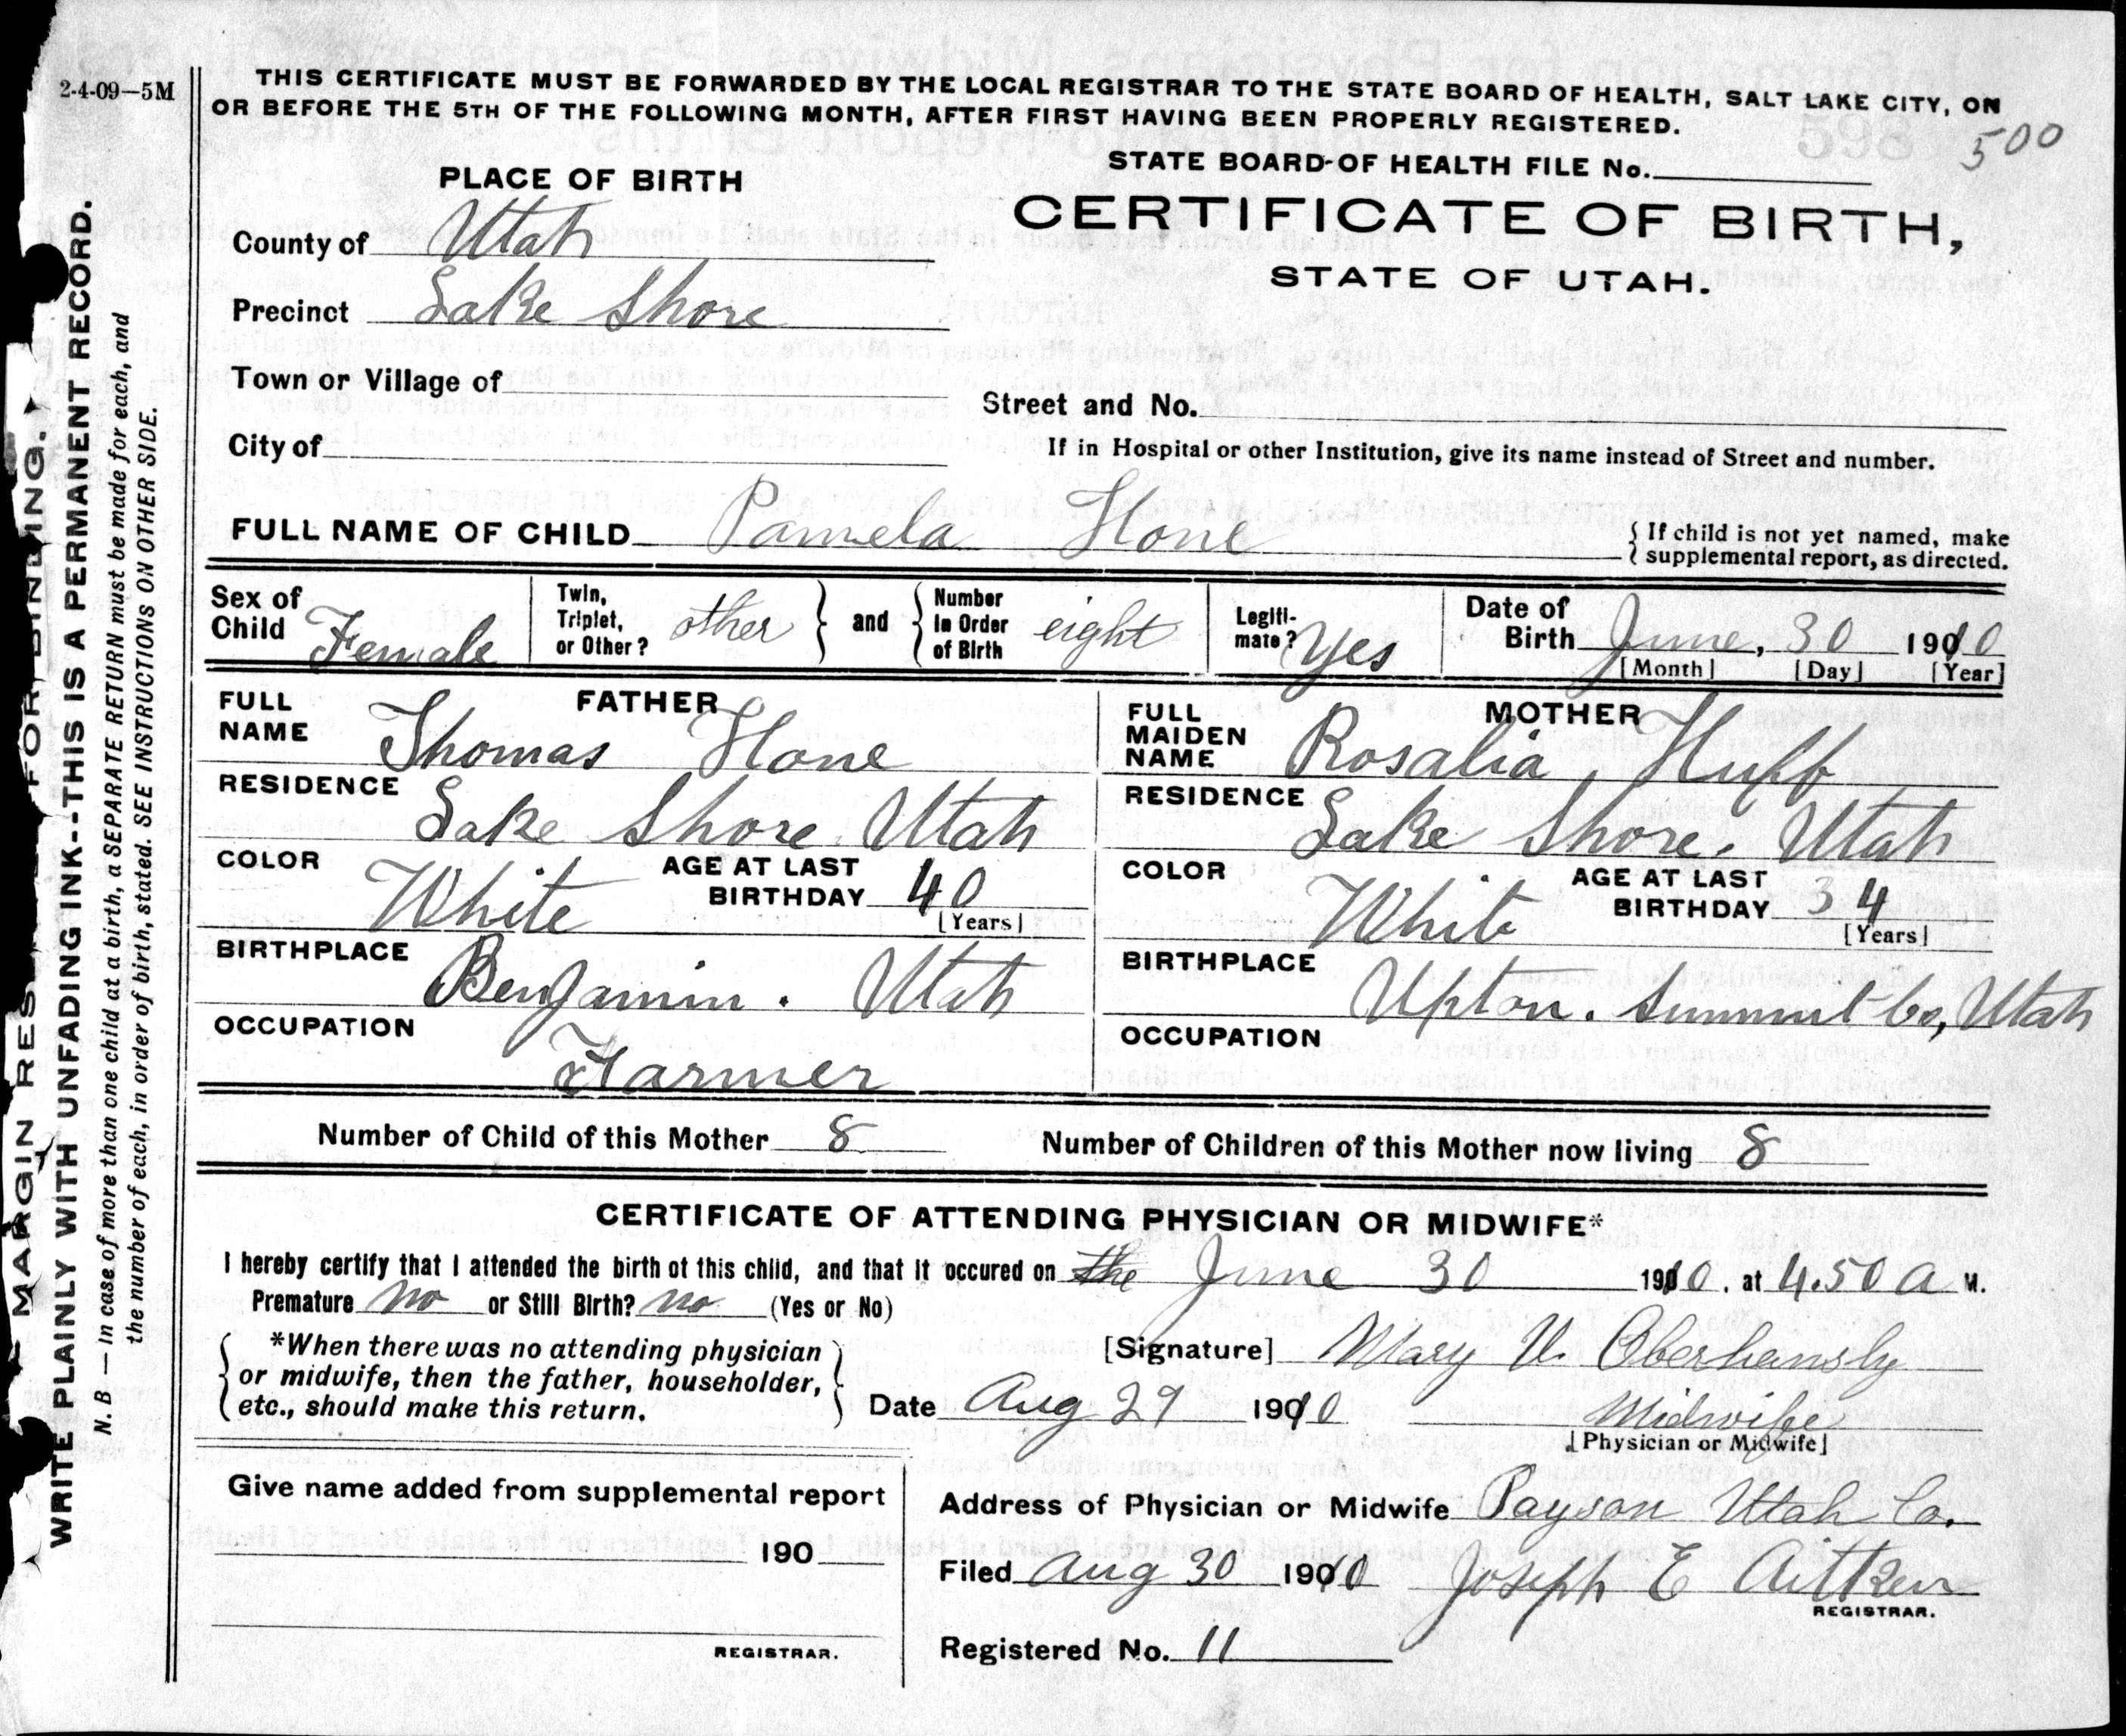 2-4-09—5M
THIS CERTIFICATE MUST BE FORWARDED BY THE LOCAL REGISTRAR TO THE STATE BOARD OF HEALTH, SALT LAKE CITY, ON
OR BEFORE THE 5TH OF THE FOLLOWING MONTH, AFTER FIRST HAVING BEEN PROPERLY REGISTERED.
598 500
STATE BOARD OF HEALTH FILE No.
PLACE OF BIRTH
CERTIFICATE OF BIRTH,
STATE OF UTAH.
County of Utah
Precinct Lake Shore
Town or Village of
Street and No.
City of
If in Hospital or other Institution, give its name instead of Street and number.
FULL NAME OF CHILD Pamela Hone
{ If child is not yet named, make
supplemental report, as directed.
Sex of Child Female
Twin, Triplet, or Other? other } and { Number in Order of Birth eight
Legiti-mate? Yes
Date of Birth June, 30 1910
[Month] [Day] [Year]
FATHER
FULL NAME Thomas Hone
RESIDENCE Lake Shore. Utah
COLOR White AGE AT LAST BIRTHDAY 40
[Years]
BIRTHPLACE Benjamin. Utah
OCCUPATION Farmer
MOTHER
FULL MAIDEN NAME Rosalia Huff
RESIDENCE Lake Shore. Utah
COLOR White AGE AT LAST BIRTHDAY 34
[Years]
BIRTHPLACE Upton. Summit Co, Utah
OCCUPATION
Number of Child of this Mother 8 Number of Children of this Mother now living 8
CERTIFICATE OF ATTENDING PHYSICIAN OR MIDWIFE*
I hereby certify that I attended the birth of this child, and that it occured on the June 30 1910. at 4.50 A M.
Premature no or Still Birth? no (Yes or No)
*When there was no attending physician
or midwife, then the father, householder,
etc., should make this return.
[Signature] Mary V. Oberhansly
Date Aug 29 1910 Midwife
[Physician or Midwife]
Give name added from supplemental report
190
REGISTRAR.
Address of Physician or Midwife Payson Utah Co.
Filed Aug 30 1910 Joseph E Aitken
REGISTRAR.
Registered No. 11
MARGIN FOR BINDING.
WRITE PLAINLY WITH UNFADING INK--THIS IS A PERMANENT RECORD.
N. B — In case of more than one child at a birth, a SEPARATE RETURN must be made for each, and
the number of each, in order of birth, stated. SEE INSTRUCTIONS ON OTHER SIDE.